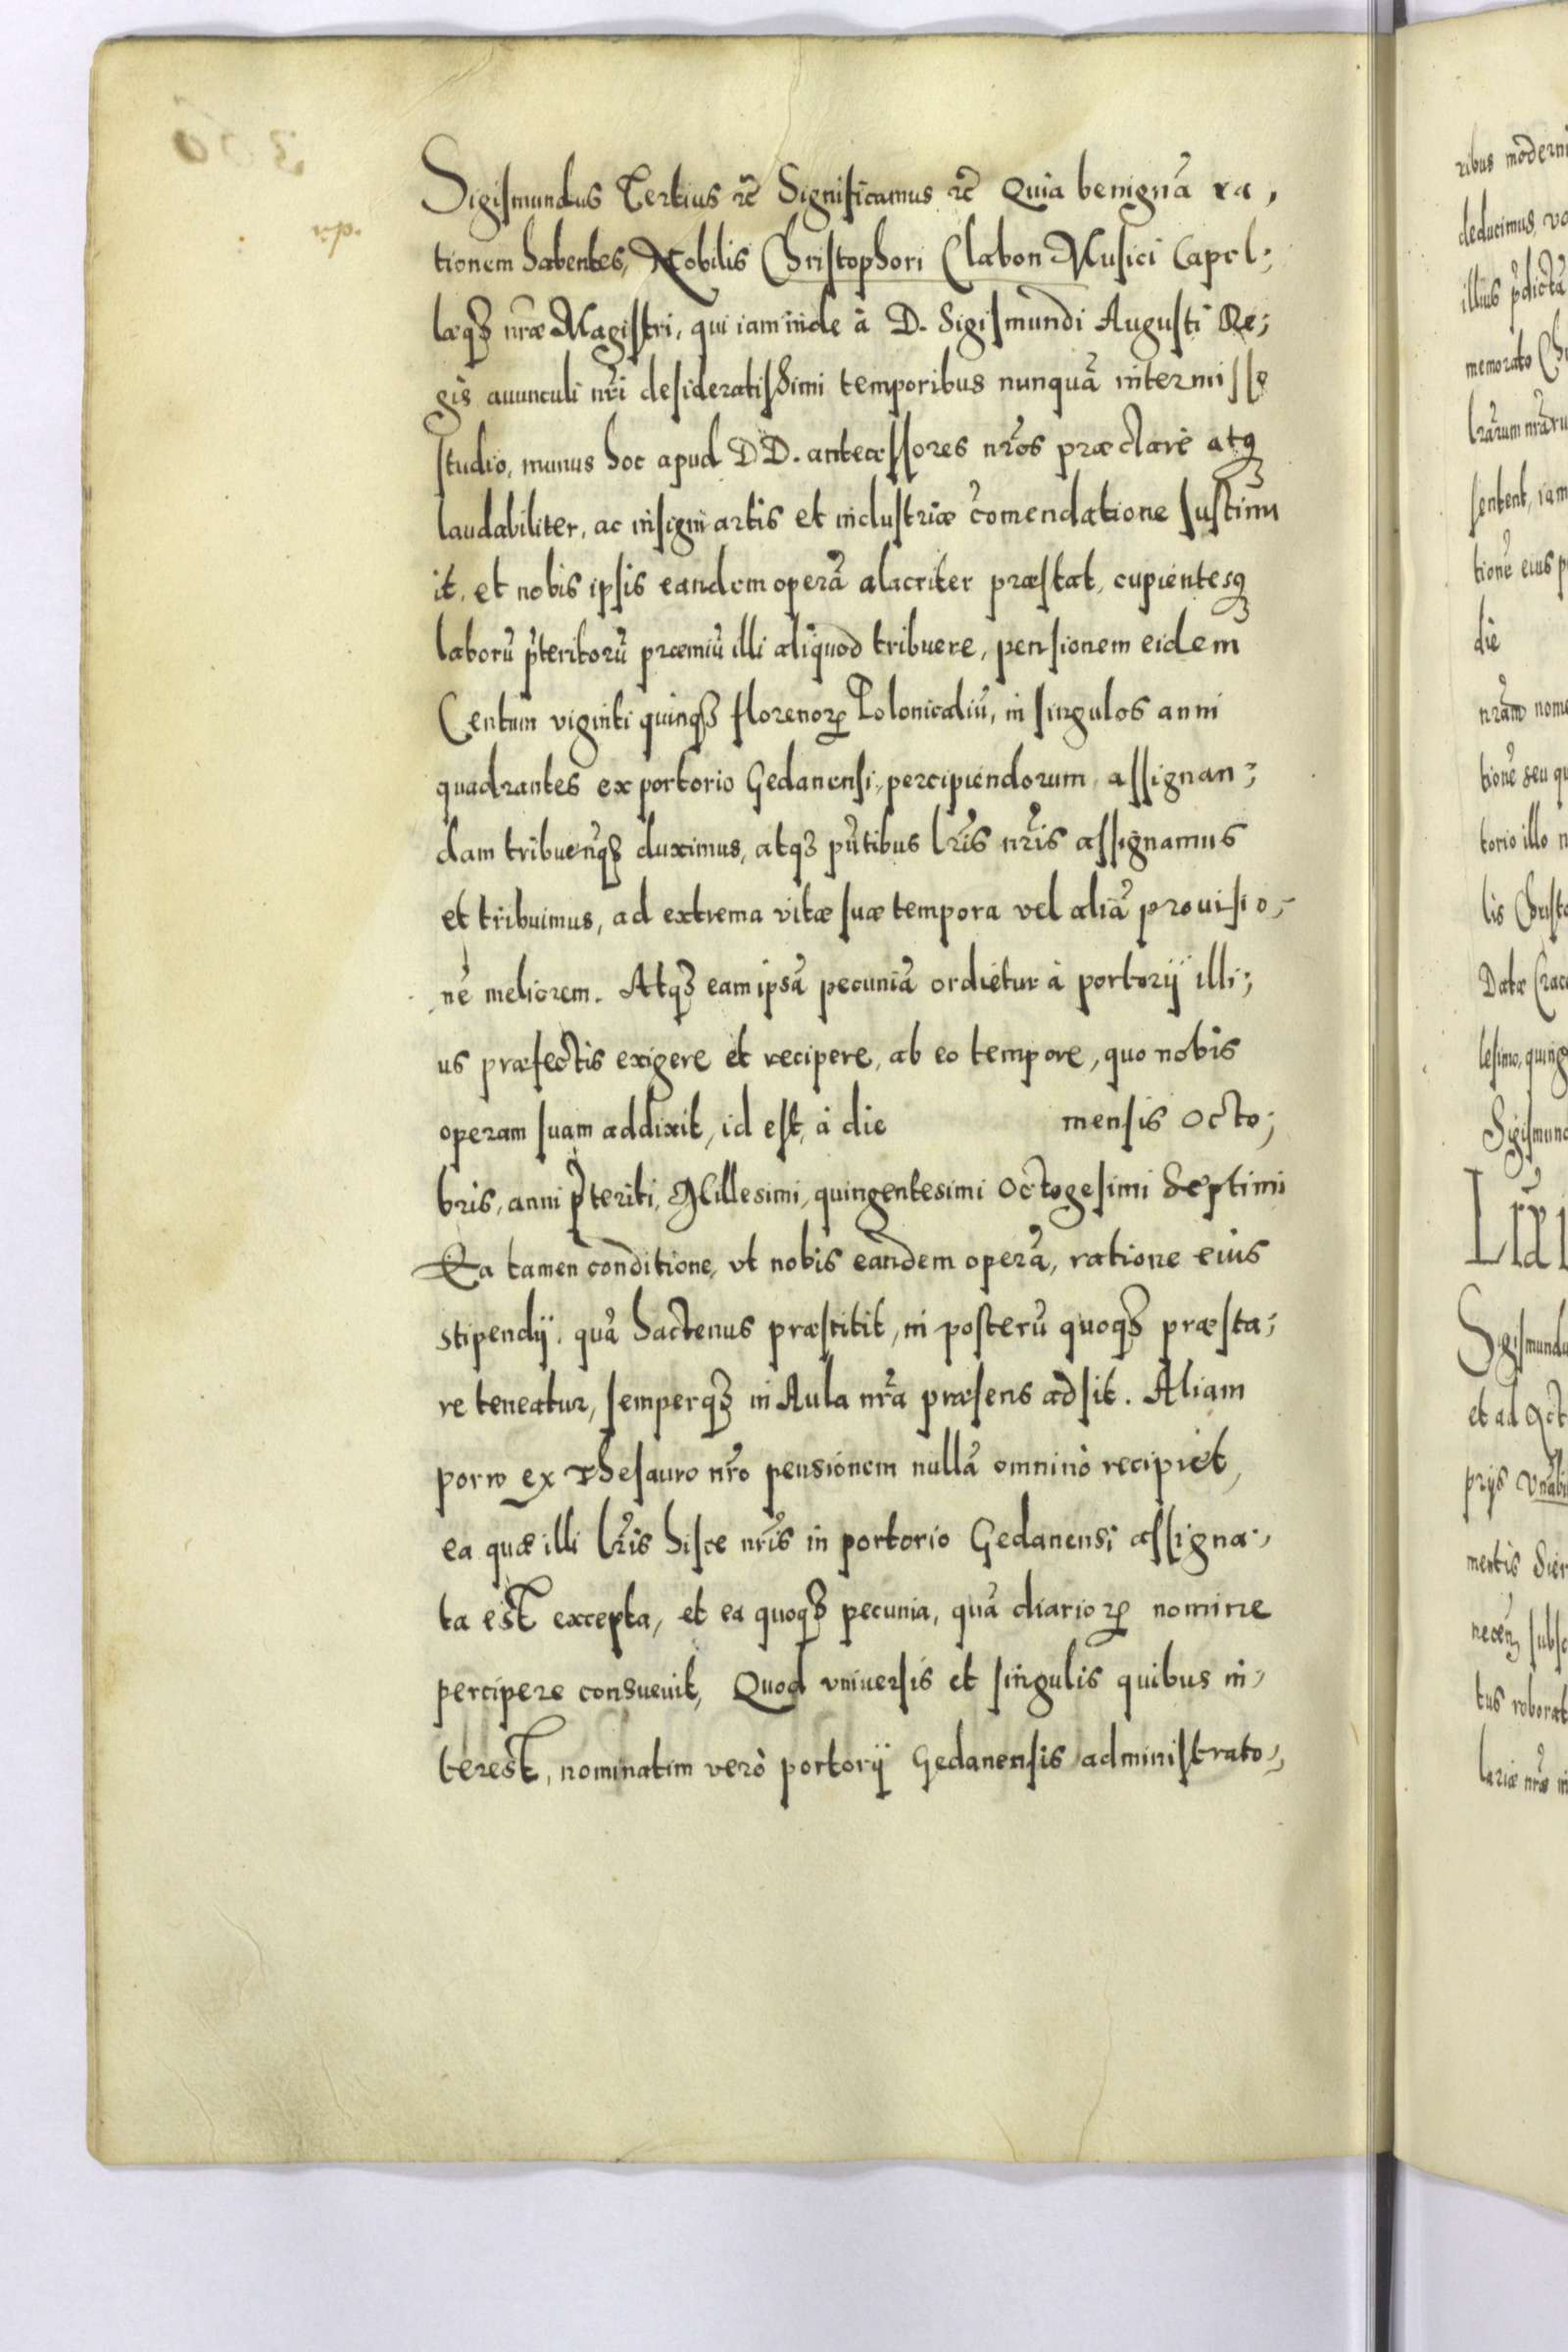 Sigismundus Tertius etc̃ Significamus etc̃ Quia benignã ra,
tionem habentes, Nobilis Christophori Clabon Musici Capel;
læqꝫ nr̃æ Magistri, qui iam inde à D. Sigismundi Augusti Re;
gis auunculi nr̃i desideratissimi temporibus nunquã intermisso
studio, munus hoc apud DD. antecessores nr̃os præclarè atqꝫ
laudabiliter, ac insigni artis et industriæ com̃endatione sustinu
it, et nobis ipsis eandem operã alacriter præstat, cupientesqꝫ
laborũ p̃teritorũ præmiũ illi aliquod tribuere, pensionem eidem
Centum viginti quinqꝫ florenoꝝ Polonicaliũ, in singulos anni
quadrantes ex portorio Gedanensi, percipiendorum assignan;
dam tribuen̂qꝫ duximus, atqꝫ pñtibus lr̃is nr̃is assignamus
et tribuimus, ad extrema vitæ suæ tempora vel aliã prouisio;
nẽ meliorem. Atqꝫ eam ipsã pecuniã ordietur à portorij illi;
us præfectis exigere et recipere, ab eo tempore, quo nobis
operam suam addixit, id est, à die mensis Octo;
bris, anni p̃teriti, Millesimi, quingentesimi Octogesimi Septimi
Ea tamen conditione, vt nobis eandem operã, ratione eius
stipendij, quã hactenus præstitit, in posterũ quoqꝫ præsta;
re teneatur, semperqꝫ in Aula nr̃a præsens adsit. Aliam
porro ex Thesauro nr̃o pensionem nullã omninò recipiet,
ea quæ illi lr̃is hisce nr̃is in portorio Gedanensi assigna;
ta est excepta, et ea quoqꝫ pecunia, quã diarioꝝ nomine
percipere consueuit, Quod vniuersis et singulis quibus in;
terest, nominatim verò portorij Gedanensis administrato;
ribus moderni
deducimus,
illius p̃dictã
memorato
lr̃arum nr̃aru
sentent, iam
tionẽ eius
die
nr̃am nom
tionẽ seu qu
torio illo n
lis Christo
Datæ Crac
lesimo, quing
Sigismund
Sigismundu
et ad
prijs
mentis
necẽ subs
tus roborat
lariæ nr̃æ